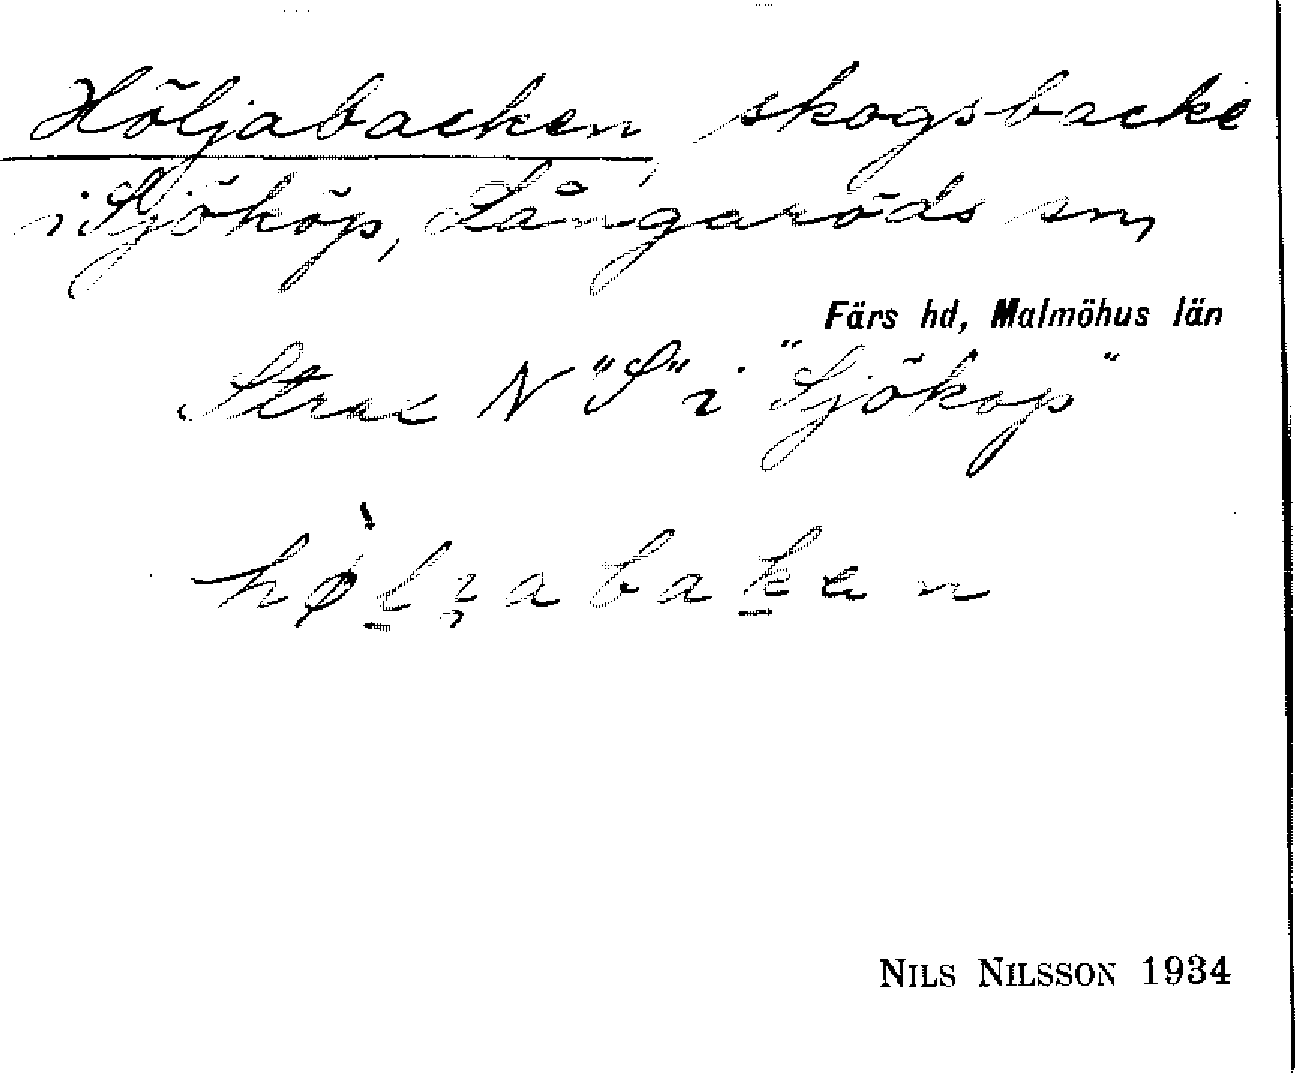 Höljabacken, skogsbacke
i Sjököp, Långaröds sn,
Färs hd, Malmöhus län
Strax N "S" i "Sjököp"
NILS NILSSON 1934